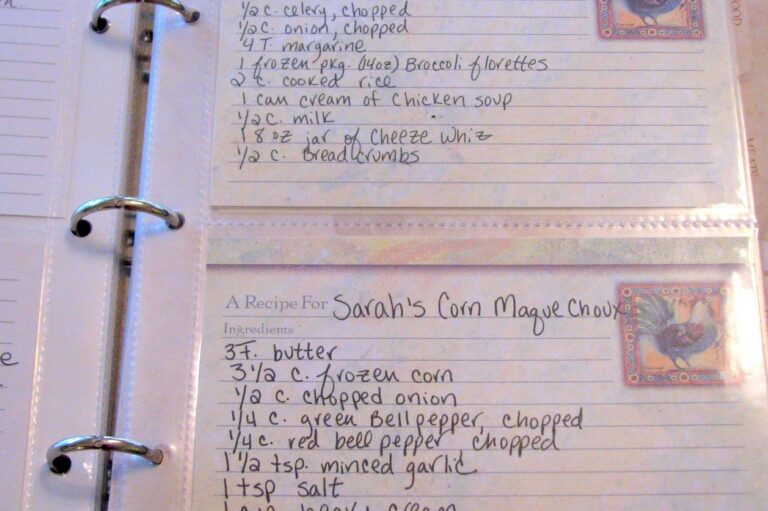 1/2 c. celery, chopped
1/2 c. onion, chopped
4 T. margarine
1 frozen pkg. (14oz) Broccoli florettes
2 c. cooked rice
1 can cream of chicken soup
1/2 c. milk
1 8 oz jar of Cheeze Whiz
1/2 c. Breadcrumbs
A Recipe For Sarah's Corn Maque Choux
Ingredients
3T. butter
3 1/2 c. frozen corn
1/2 c. chopped onion
1/4 c. green Bell pepper, chopped
1/4 c. red bell pepper chopped
1 1/2 tsp. minced garlic
1 tsp salt
heavy cream